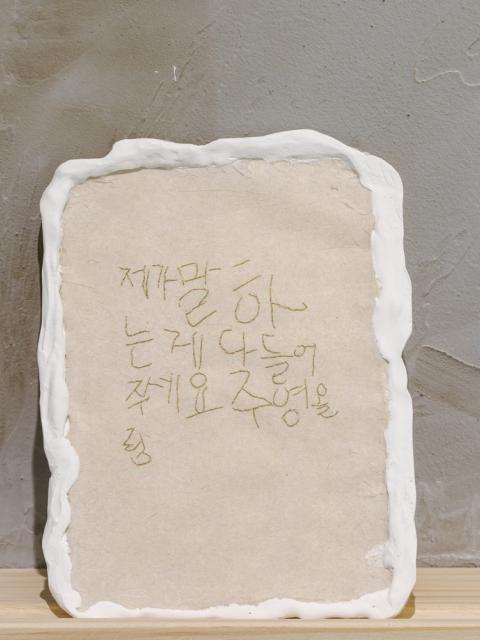 제가말하
는게다들어
주세요주영올
림